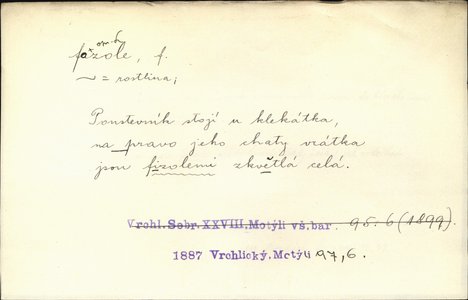 fazole, f.
~ = rostlina;
Poustevník stojí u klekátka,
na pravo jeho chaty vrátka
jsou fizolemi zkvětlá celá.
Vrchl. Sebr. XXVIII. Motýli vš. bar. 98. 6 (1899).
1887 Vrchlický, Motýli 97, 6.